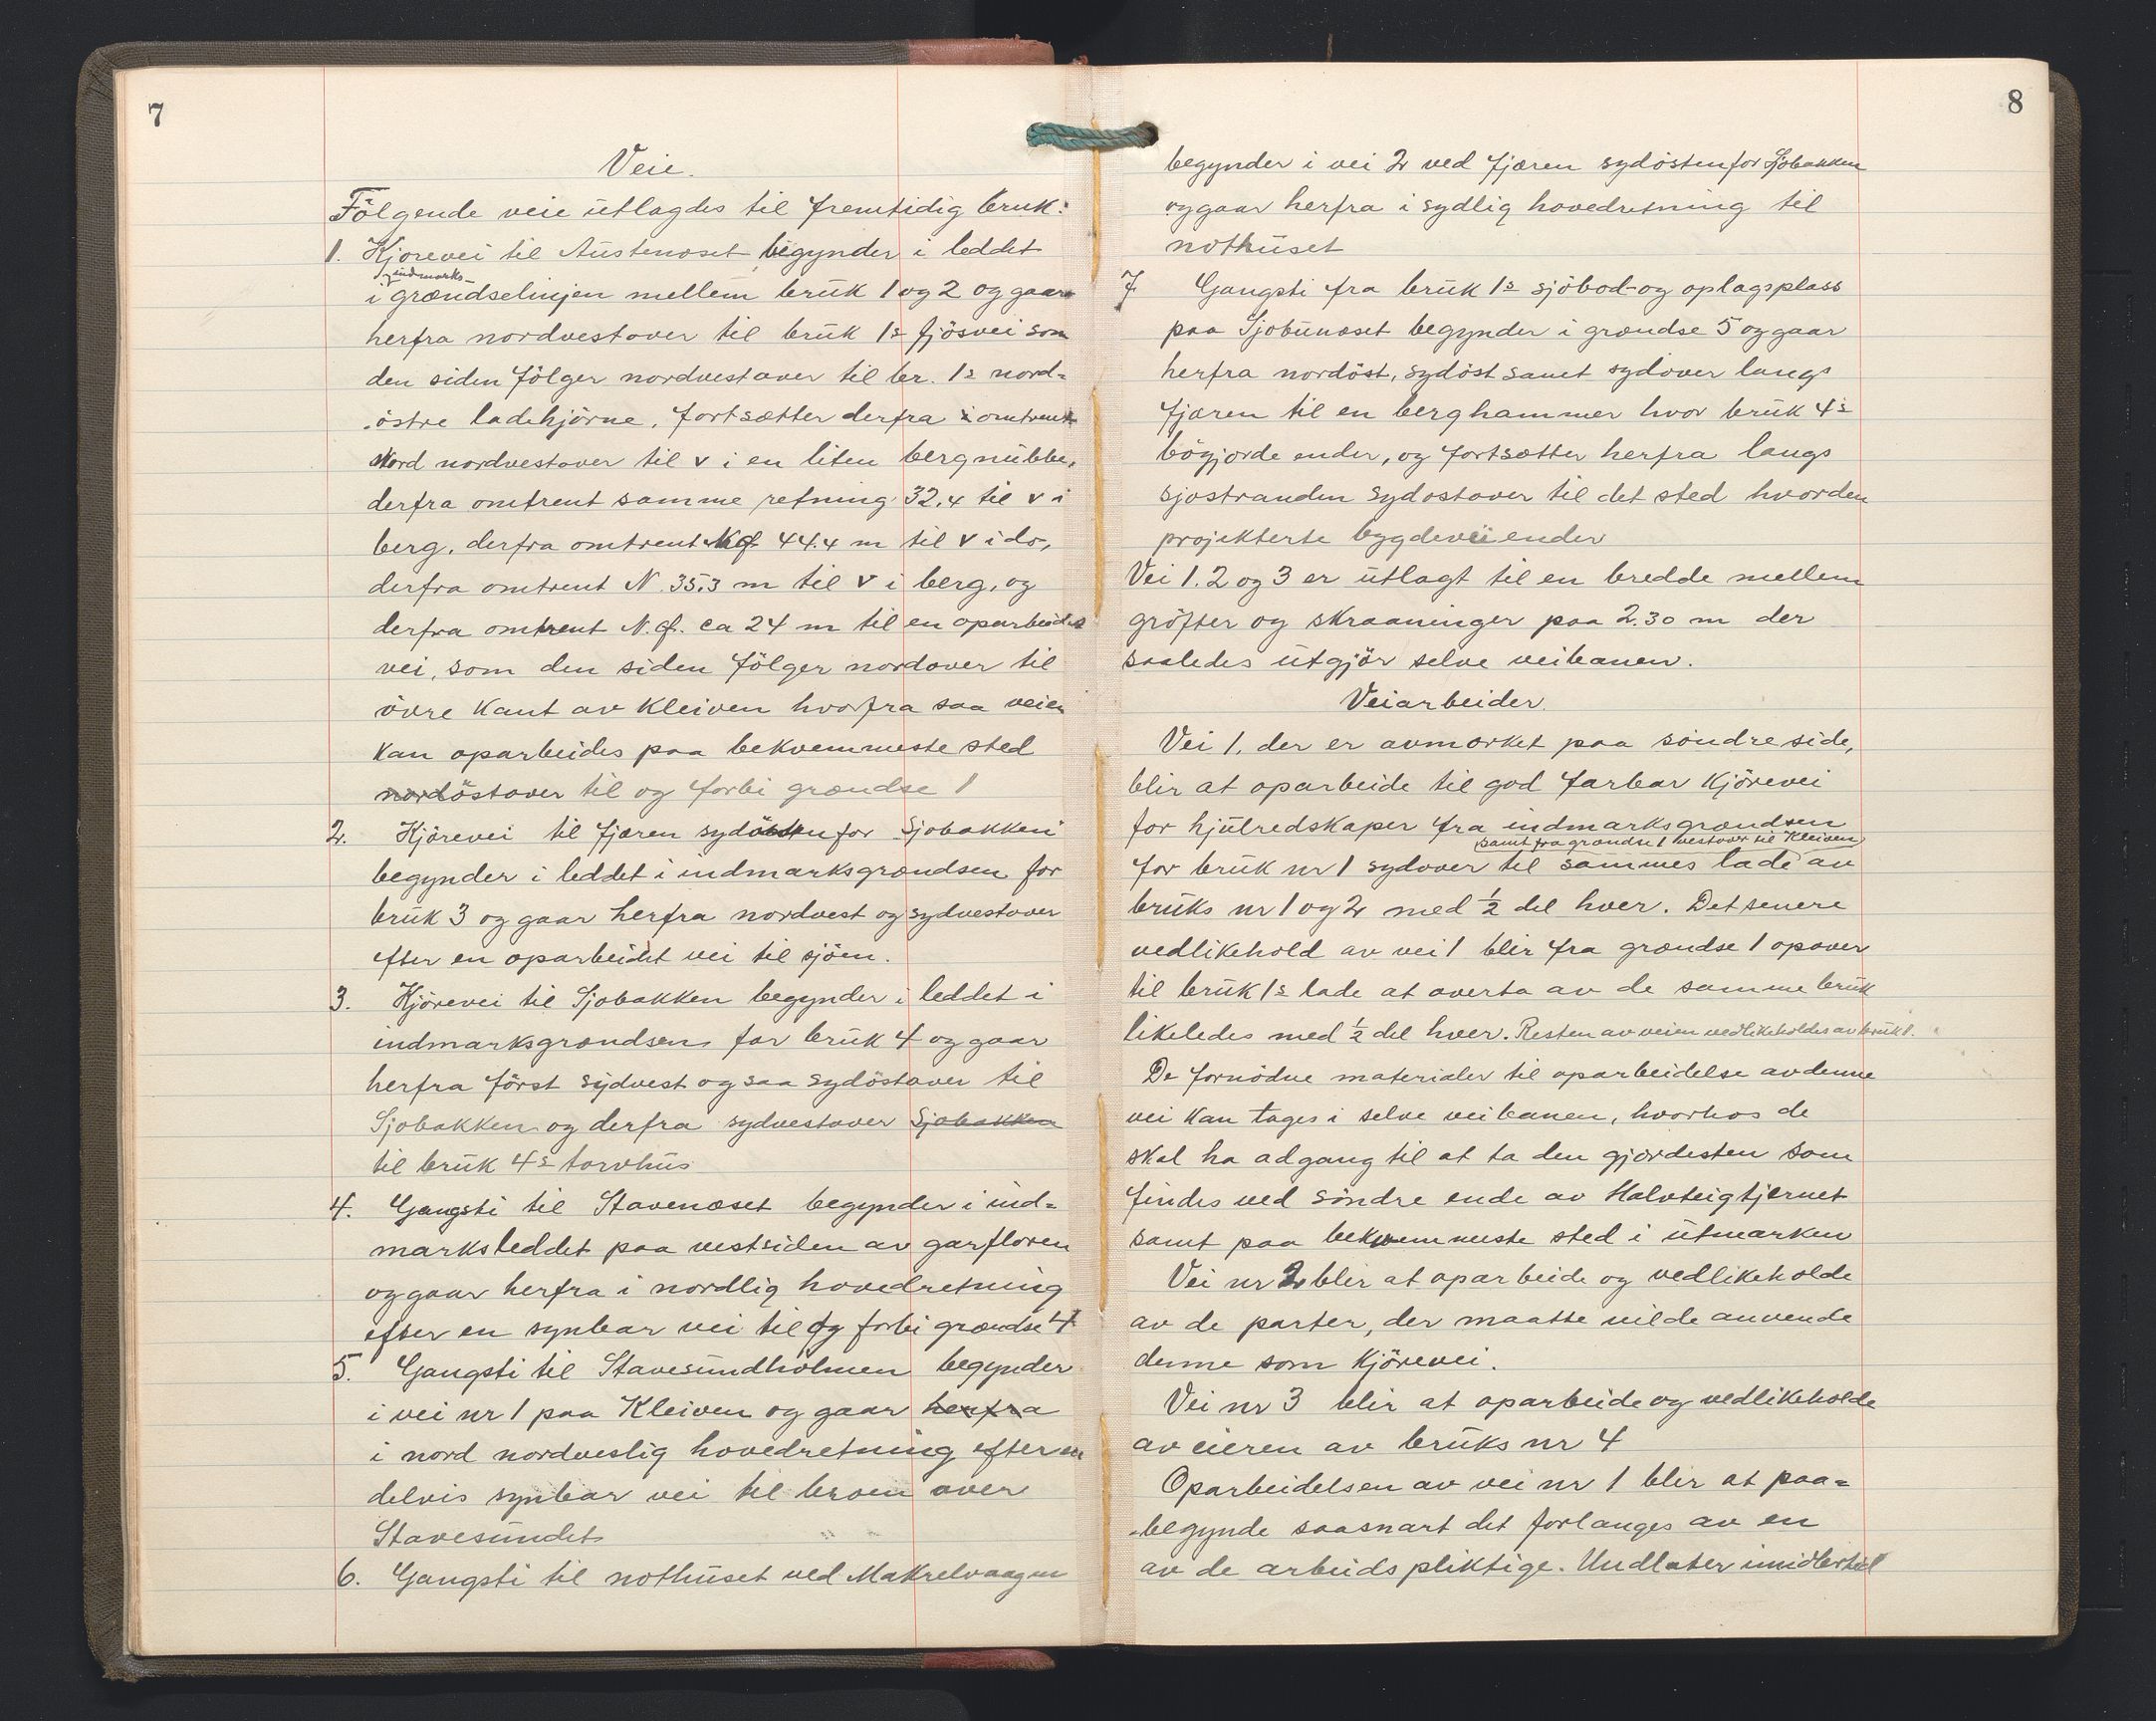 7
Veie.
Følgende veie utlagdes til fremtidig bruk:
1. Kjørevei til Austenæset begynder i leddet
indmarks
i grændselinjen mellem bruk 1 og 2 og gaar
herfra nordvestover til bruk 1s fjøsvei som
den siden følger nordvestover til br. 1s nord-
østre ladehjørne, fortsætter derfra i omtrent
Nord nordvestover til v i en liten bergnubbe,
derfra omtrent samme retning 32.4 til v i
berg, derfra omtrent 44.4 m til v i do,
derfra omtrent N. 35.3 m til v i berg, og
derfra omtrent ca 24 m til en oparbeidet
vei, som den siden følger nordover til
øvre kant av Kleiven hvorfra saa veien
kan oparbeides paa bekvemmeste sted
nordøstover til og forbi grændse 1
2. Kjørevei til fjæren sydøstenfor Sjobakken
begynder i leddet i indmarksgrændsen for
bruk 3 og gaar herfra nordvest og sydvestover
efter en oparbeidet vei til sjøen.
3. Kjørevei til Sjobakken begynder i leddet i
indmarksgrændsen for bruk 4 og gaar
herfra først sydvest og saa sydøstover til
Sjobakken og derfra sydvestover Sjobakken
til bruk 4s torvhus
4. Gangsti til Stavenæset begynder i ind-
marksleddet paa vestsiden av garfloren
og gaar herfra i nordlig hovedretning
efter en synbar vei til og forbi grændse 4
5. Gangsti til Stavesundholmen begynder
i vei nr 1 paa Kleiven og gaar herfra
i nord nordvestlig hovedretning efter en
delvis synbar vei til broen over
Stavesundet
6. Gangsti til nothuset ved Makrelvaagen
8
begynder i vei 2 ved fjæren sydøstenfor Sjobakken
og gaar herfra i sydlig hovedretning til
nothuset
7 Gangsti fra bruk 1s sjøbod- og oplagsplass
paa Sjobunæset begynder i grændse 5 og gaar
herfra nordøst, sydøst samt sydover langs
fjæren til en berghammer hvor bruk 4s
bøgjorde ender, og fortsætter herfra langs
sjøstranden sydostover til det sted hvor den
projekterte bygdevei ender
Vei 1. 2 og 3 er utlagt til en bredde mellem
grøfter og skraaninger paa 2.30 m der
saaledes utgjør selve veibanen.
Veiarbeider.
Vei 1, der er avmerket paa søndre side,
blir at oparbeide til god farbar kjørevei
for hjulredskaper fra indmarksgrændsen
samt fra grændse 1 vestover til Kleiven
for bruk nr 1 sydover til sammes lade av
bruks nr 1 og 2 med ½ del hver. Det senere
vedlikehold av vei 1 blir fra grændse 1 opover
til bruk 1s lade at overta av de samme bruk
likeledes med ½ del hver. Resten av veien vedlikeholdes av bruk 1.
De fornødne materialer til oparbeidelse av denne
vei kan tages i selve veibanen, hvorhos de
skal ha adgang til at ta den gjærdesten som
findes ved søndre ende av Halvteigtjernet
samt paa bekvemmeste sted i utmarken
Vei nr 2 blir at oparbeide og vedlikeholde
av de parter, der maatte vilde anvende
denne som kjørevei.
Vei nr 3 blir at oparbeide og vedlikeholde
av eieren av bruks nr 4
Oparbeidelsen av vei nr 1 blir at paa-
begynde saasnart det forlanges av en
av de arbeidspliktige. Undlater imidlertid